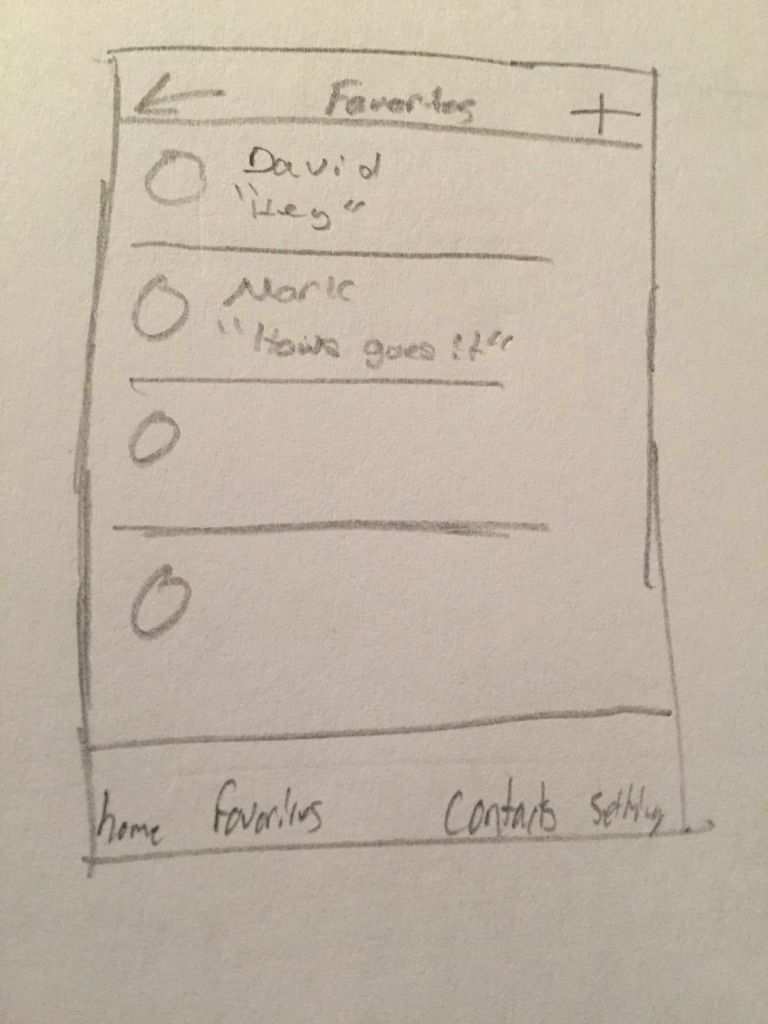 Favorites
David
"Hey"
Mark
"Hows goes it"
home Favorites Contacts Setting